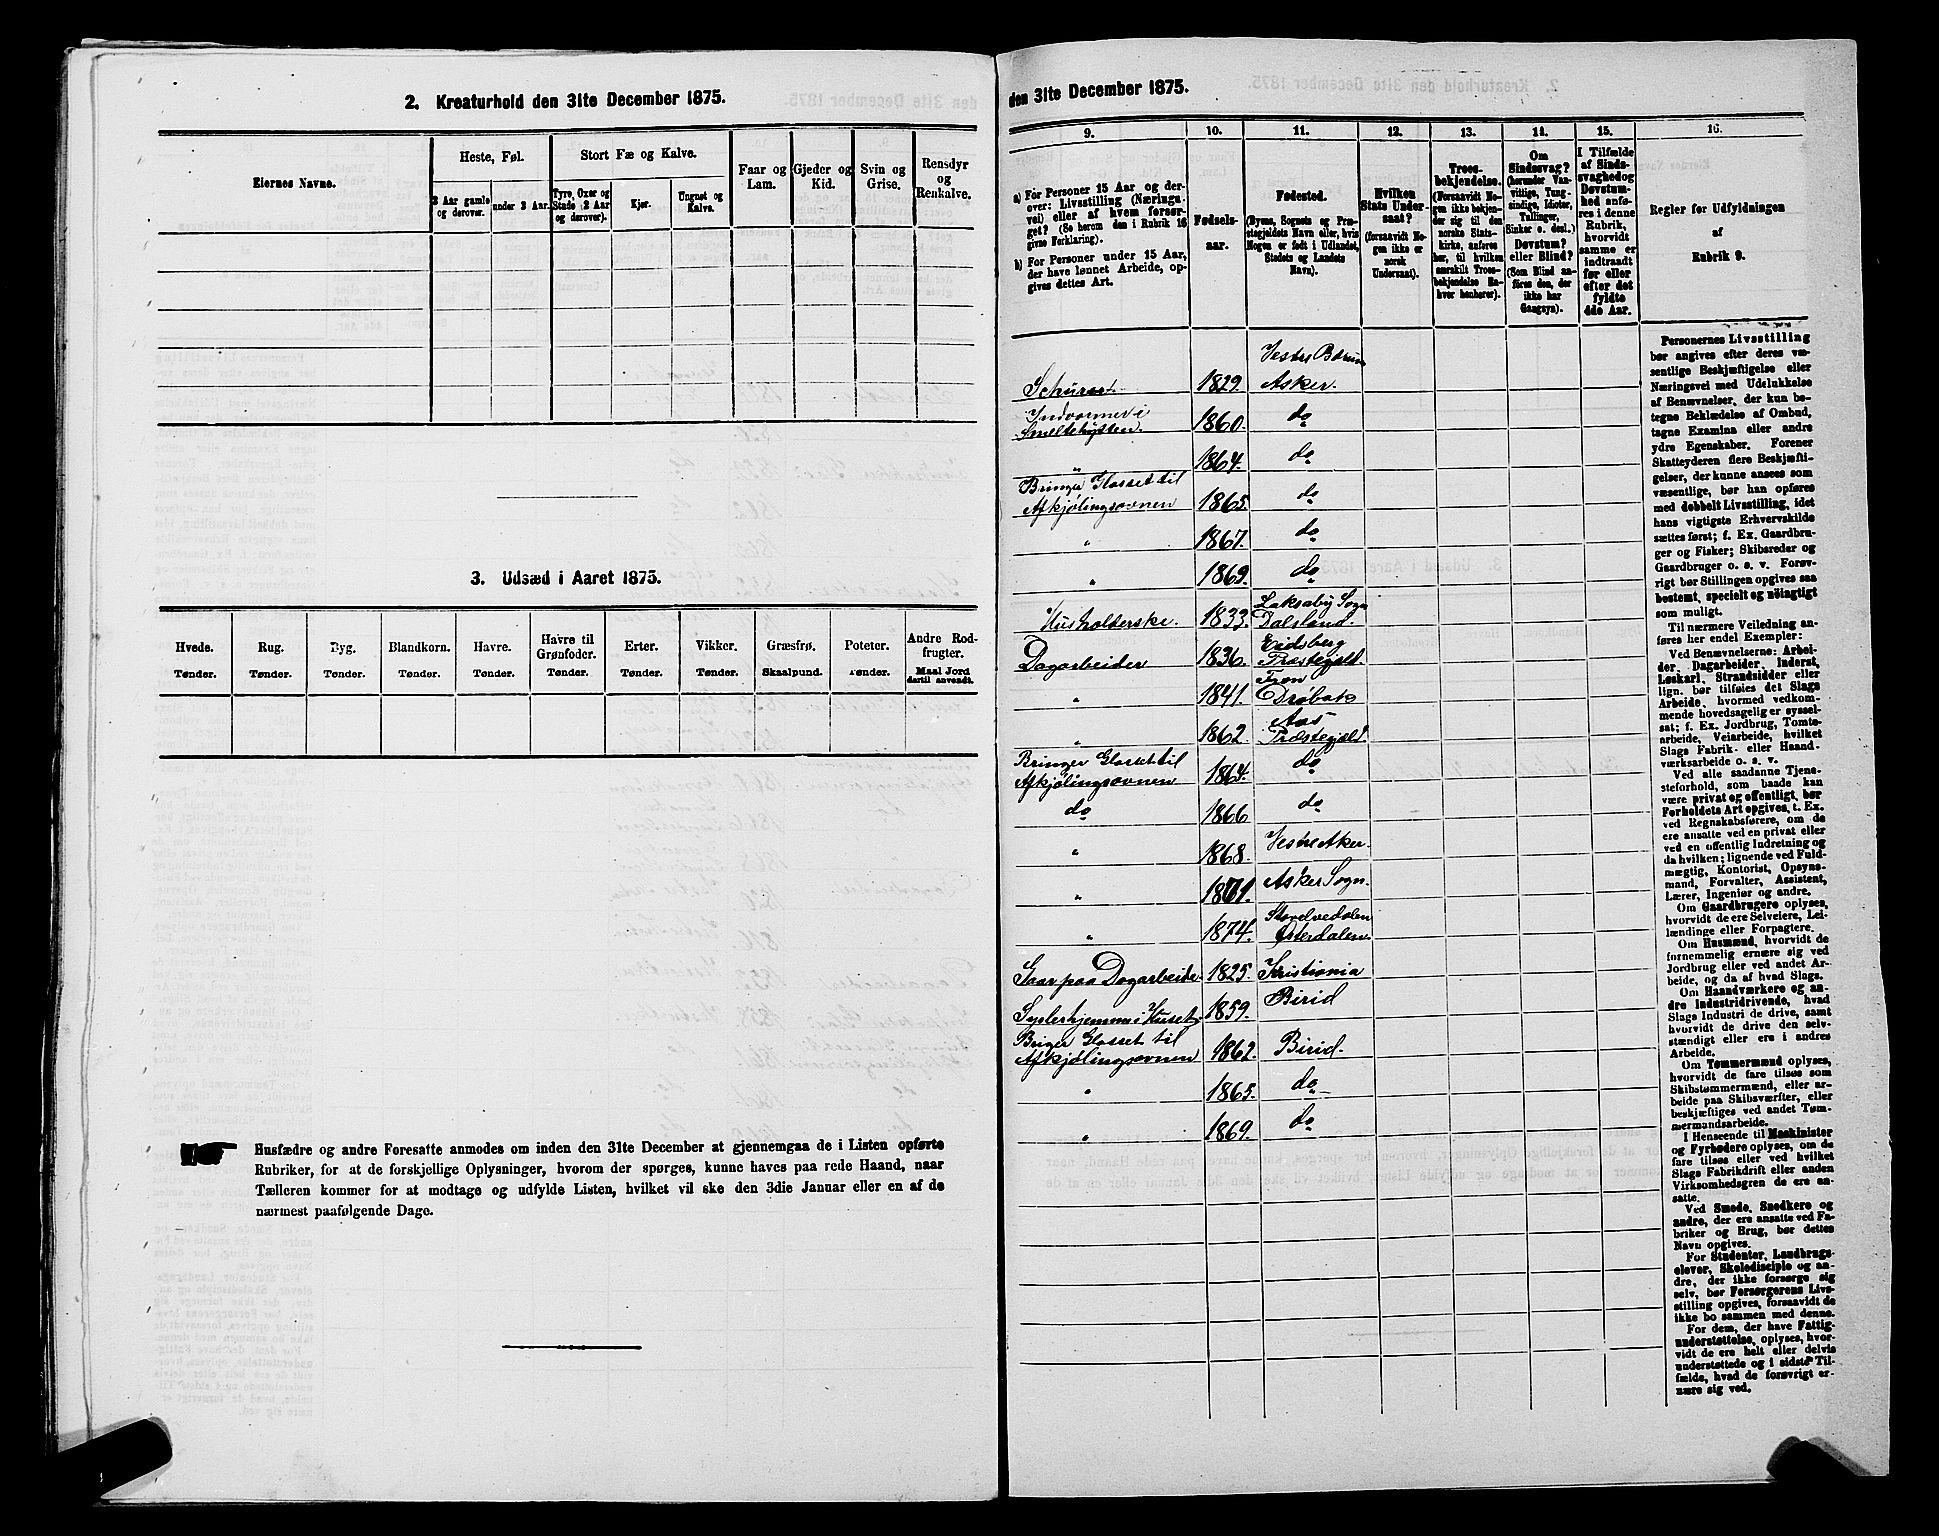 2. Kreaturhold den 31te December 1875.
Eiernes Navne.
Heste, Føl.
3 Aar gamle og derover.
under 3 Aar.
Stort Fæ og Kalve.
Tyre, Oxer og Stude 2 Aar og derover).
Kjør.
Ungnøt og Kalve.
Faar og Lam.
Gjeder og Kid.
Svin og Grise.
Rensdyr og Renkalve.
3. Udsæd i Aaret 1875.
Hvede. Rug. Byg. Blandkorn. Havre. Havre til Grønfoder. Erter. Vikker. Græsfrø. Poteter. Andre Rodfrugter.
Tønder. Tønder. Tønder. Tønder. Tønder. Tønder. Tønder. Tønder. Skaalpund. Tønder. Maal Jord dertil anvendt.
Husfædre og andre Foresatte anmodes om inden den 31te December at gjennemgaa de i Listen opførte
Rubriker, for at de forskjellige Oplysninger, hvorom der spørges, kunne haves paa rede Haand, naar
Tælleren kommer for at modtage og udfylde Listen, hvilket vil ske den 3die Januar eller en af de
nærmest paafølgende Dage.
den 31te December 1875.
9. 10. 11. 12. 13. 14. 15. 16.
a) For Personer 15 Aar og derover: Livsstilling (Næringsvei) eller af hvem forsørget? (Se herom den i Rubrik 16 givne Forklaring).
b) For Personer under 15 Aar, der have lønnet Arbeide, opgives dettes Art.
Fødselsaar.
Fødested.
(Byens, Sognets og Præstegjeldets Navn eller, hvis Nogen er født i Udlandet, Stedets og Landets Navn).
Hvilken Stats Undersaat?
(forsaavidt Nogen ikke er norsk Undersaat).
Troesbekjendelse.
(Forsaavidt Nogen ikke bekjender sig til den norske Statskirke, anføres her, til hvilken særskilt Troesbekjendelse Enhver henhører).
Om Sindssvag?
(herunder Vanvittige, Tungsindige, Idioter, Tullinger, Sinker o. desl.)
Døvstum? eller Blind?
(Som Blind anføres den, der ikke har Gangsyn).
I Tilfælde af Sindssvaghed og Døvstumhed anføres i denne Rubrik, hvorvidt samme er indtraadt før eller efter det fyldte 4de Aar.
Regler for Udfyldningen
af
Rubrik 9.
Vestre Bærum
1829. Asker.
Indvarmer i
Smeltehytten. 1860. do
" 1864. do
Bringer Glasset til
Afkjølingsovnen 1865. do
" 1867. do
" 1869. do
Sogn
Husholderske. 1833. Dalsland.
Eidsberg
Dagarbeider 1836. Præstegjeld.
" 1841. Drøbak
Aas
" 1862. Præstegjeld.
Bringer Glasset til
Afkjølingsovnen 1864. do
do 1866 do
" 1868. Vestre Aker.
" 1871. Asker Sogn.
" 1874. Østerdalen.
Gaar paa Dagarbeide. 1825. Kristiania
hjemme i Huset. 1859. Birid
Briger Glasset til
Afkjølingsovnen 1862. Birid.
" 1865. do
" 1869. do
Personernes Livsstilling
bør angives efter deres væsentlige
Beskjæftigelse eller
Næringsvei med Udelukkelse
af Benævnelser, der kun betegne
Beklædelse af Ombud,
tagne Examina eller andre
ydre Egenskaber. Forener
Skatteyderen flere Beskjæftigelser,
der kunne ansees som
væsentlige, bør han opføres
med dobbelt Livsstilling, idet
hans vigtigste Erhvervskilde
sættes først; f. Ex. Gaardbruger
og Fisker; Skibsreder og
Gaardbruger o. s. v. Forøvrigt
bør Stillingen opgives saa
bestemt, specielt og nøiagtigt
som muligt.
Til nærmere Veiledning anføres
her endel Exempler:
Ved Benævnelserne: Arbeider,
Dagarbeider, Inderst,
Løskarl, Strandsidder eller
lign. bør tilføies det Slags
Arbeide, hvormed vedkommende
hovedsagelig er sysselsat;
f. Ex. Jordbrug, Tomtearbeide,
Veiarbeide, hvilket
Slags Fabrik- eller Haandværksarbeide
o. s. v.
Ved alle saadanne Tjenesteforhold,
som baade kan
være privat og offentligt, bør
Forholdets Art opgives, t. Ex.
ved Regnskabsførere, om de
ere ansatte ved en privat eller
ved en offentlig Indretning og
da hvilken; lignende ved Fuldmægtig,
Kontorist, Opsynsmand,
Forvalter, Assistent,
Lærer, Ingeniør og andre.
Om Gaardbrugere oplyses,
hvorvidt de ere Selveiere, Leilændinge
eller Forpagtere.
Om Husmænd, hvorvidt de
fornemmelig ernære sig ved
Jordbrug eller ved andet Arbeide,
og da af hvad Slags.
Om Haandværkere og andre
Industridrivende, hvad
Slags Industri de drive, samt
hvorvidt de drive den selvstændigt
eller ere i andres
Arbeide.
Om Tømmermænd oplyses,
hvorvidt de fare tilsøs som
Skibstømmermænd, eller arbeide
paa Skibsværfter, eller
beskjæftiges ved andet Tømmermandsarbeide.
I Henseende til Maskinister
og Fyrbødere oplyses, om de
fare tilsøs eller ved hvilket
Slags Fabrikdrift eller anden
Virksomhedsgren de ere ansatte.
Ved Smede, Snedkere og
andre, der ere ansatte ved Fabriker
og Brug, bør dettes
Navn opgives.
For Studenter, Landbrugselever,
Skoledisciple og andre,
der ikke forsørge sig
selv, bør Forsørgerens Livsstilling
opgives, forsaavidt de
ikke bo sammen med denne.
For dem, der have Fattigunderstøttelse,
oplyses, hvorvidt
de ere helt eller delvis
understøttede og i sidste Tilfælde,
hvad de forøvrigt ernære
sig ved.